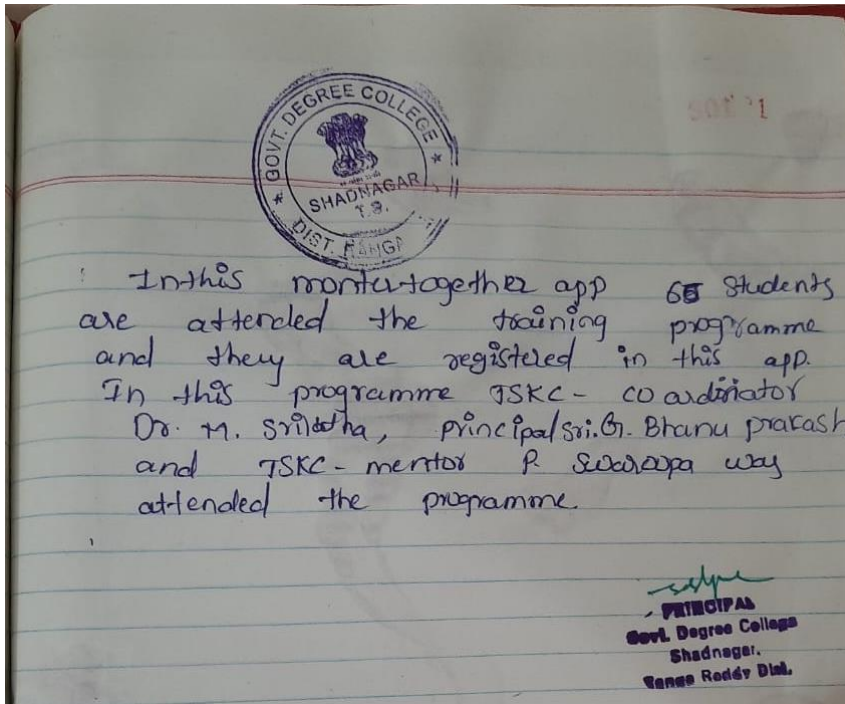 GOVT. DEGREE COLLEGE
SHADNAGAR
T.S.
DIST. RANGA
In this montertogether app 65 Students
are attended the training programme
and they are registered in this app.
In this programme TSKC - coordinator
Dr. M. Srilatha, principal Sri. G. Bhanu prakash
and TSKC - mentor P. Swaroopa way
attended the programme.
PRINCIPAL
Govt. Degree College
Shadnagar.
Ranga Reddy Dist.